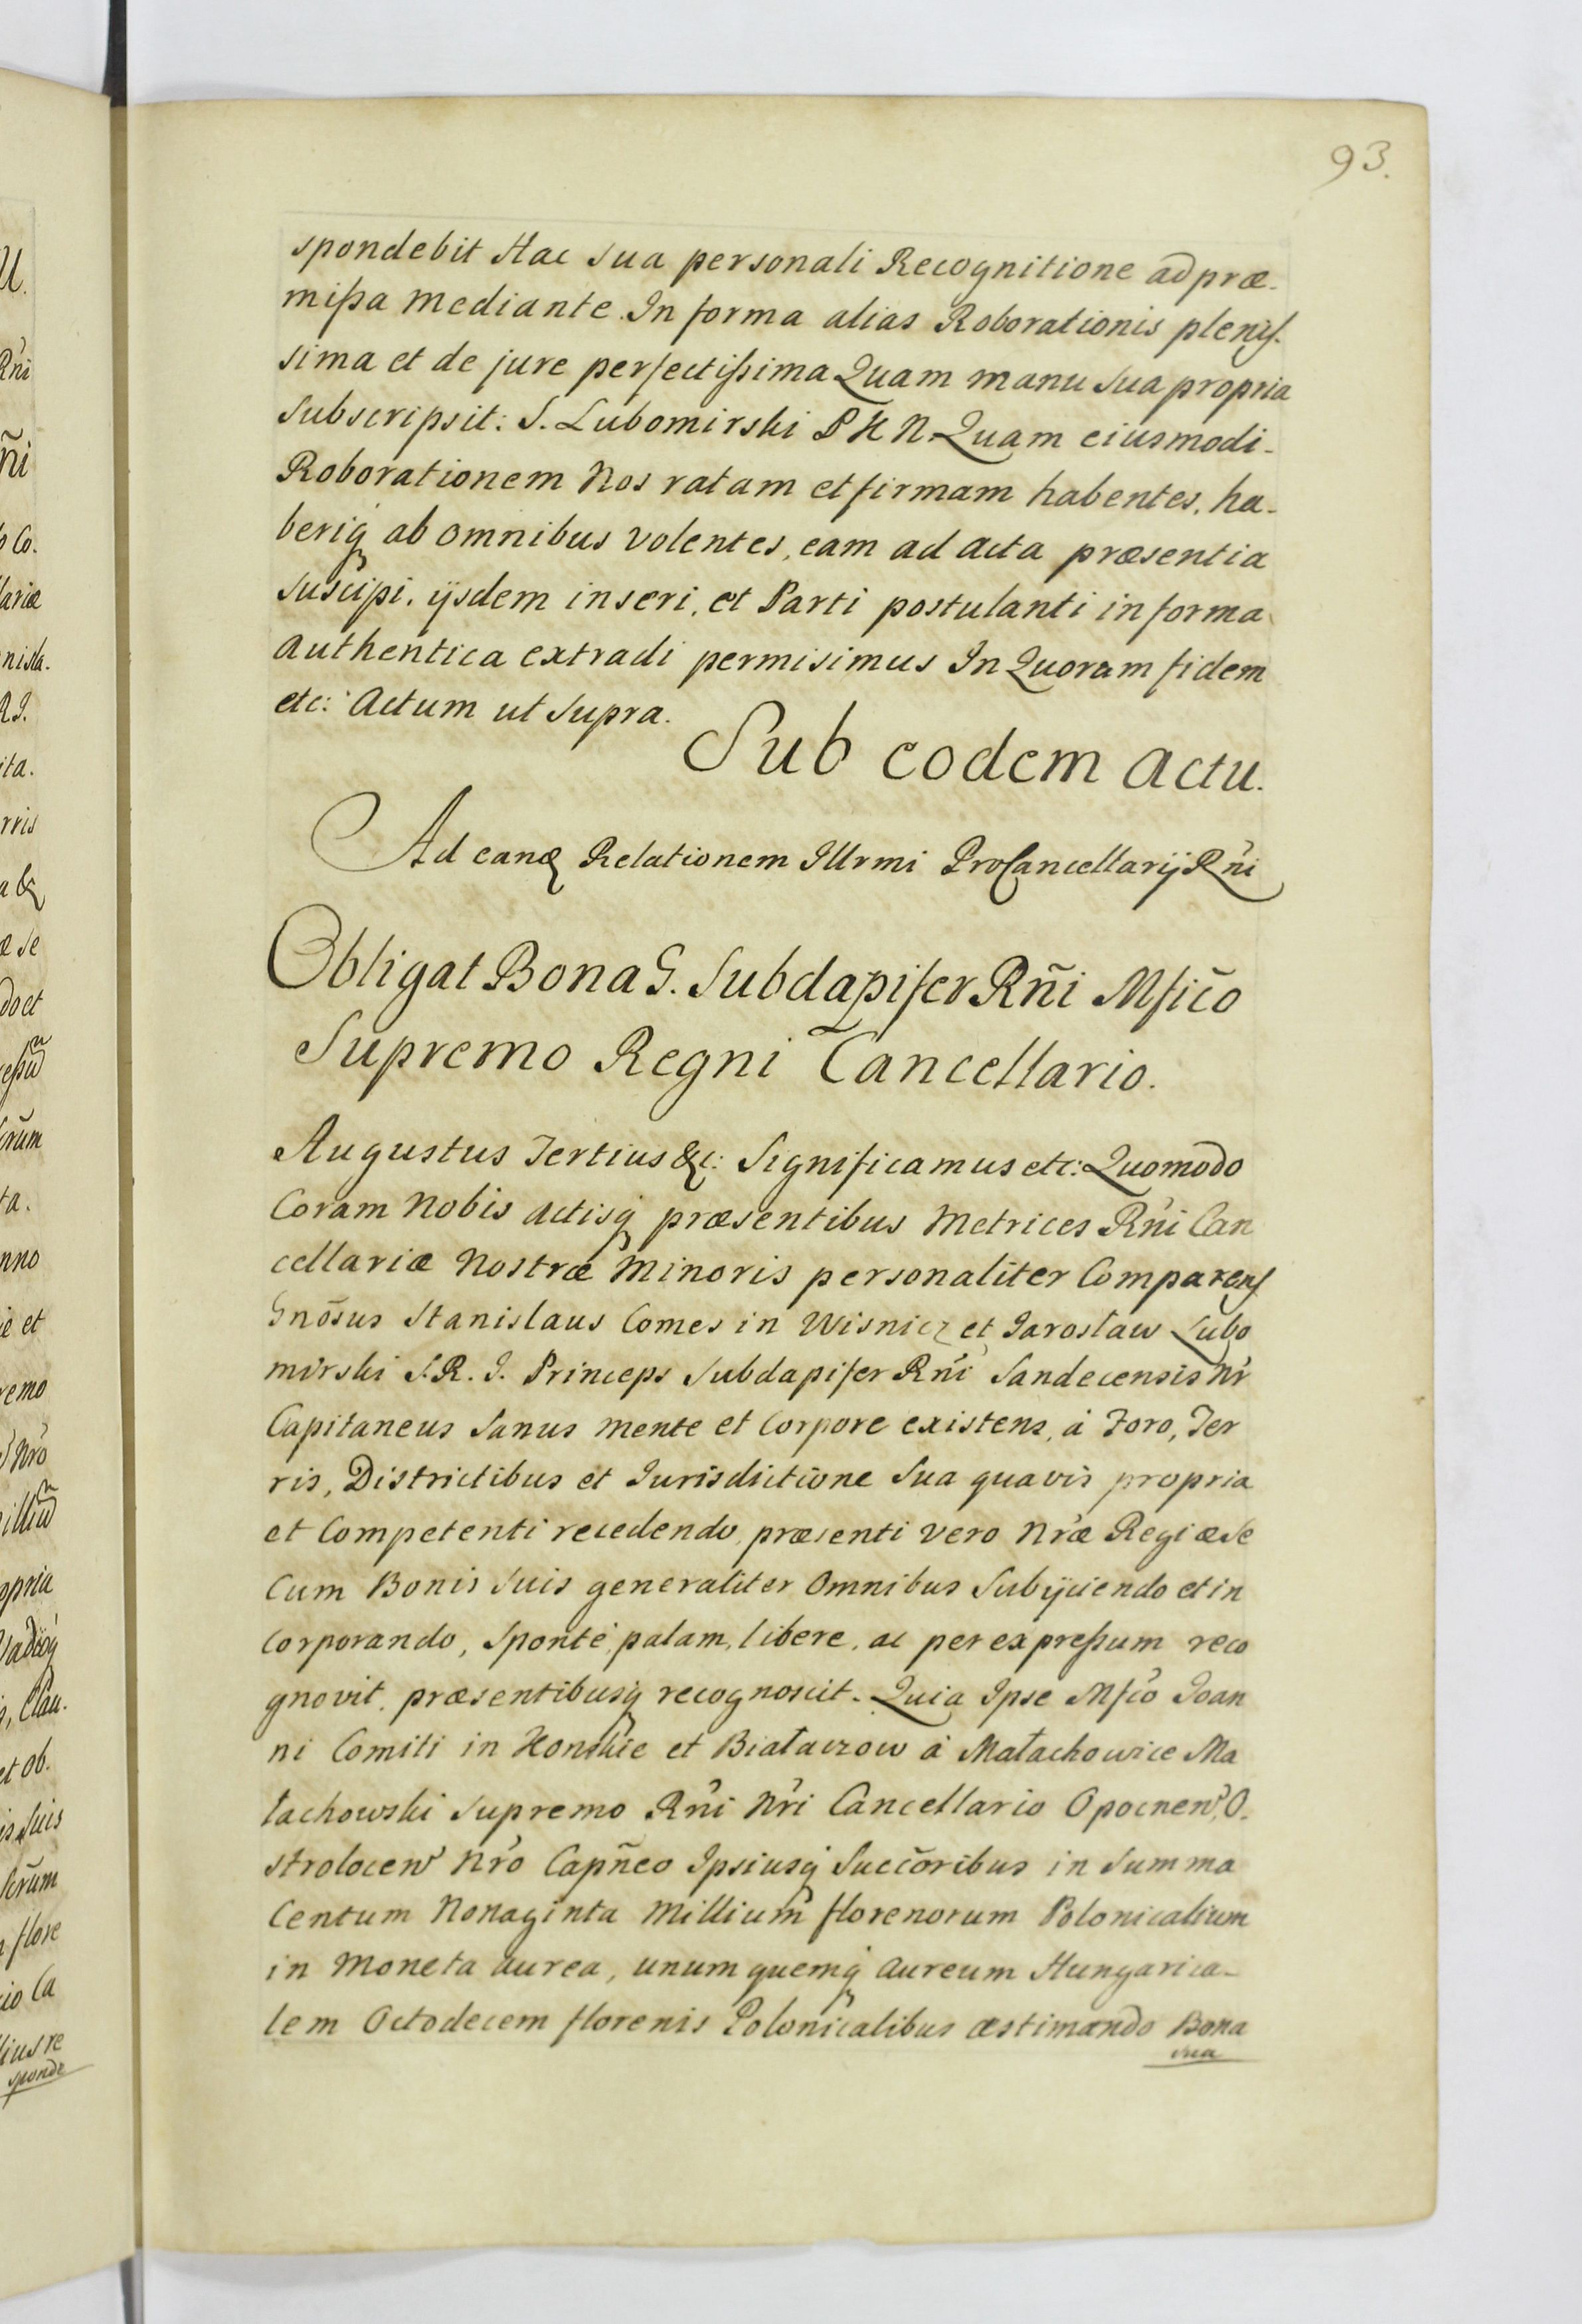 93.
spondebit Hac sua personali Recognitione ad præ-
mißa mediante. In forma alias Roborationis plenis-
sima et de jure perfectißima Quam manu sua propria
subscripsit: S. Lubomirski P K N. Quam eiusmodi-
Roborationem Nos ratam et firmam habentes, ha-
beriq́ ab omnibus volentes, eam ad acta præsentia
suscipi, ijsdem inseri, et Parti postulanti in forma
authentica extradi permisimus In Quorum fidem
etc: Actum ut supra.
Sub eodem actu.
Ad eandem Relationem Illrmi ProCancellarij Rńi
Obligat Bona G. Subdapifer Rñi Mfico
Supremo Regni Cancellario.
Augustus Tertius &c: Significamus etc: Quomodo
Coram Nobis actisq́ præsentibus Metrices Rńi Can
cellariæ Nostræ Minoris personaliter Comparens
Gnōsus Stanislaus Comes in Wisnicz et Jarosław Lubo
mirski S. R. I. Princeps Subdapifer Rńi Sandecensis Nr
Capitaneus Sanus mente et Corpore existens, à Foro, Ter
ris, Districtibus et Jurisdictione Sua quavis propria
et Competenti recedendo, præsenti vero Nræ Regiæ Se
Cum Bonis suis generaliter Omnibus Subijciendo et in
corporando, sponte, palam, libere, ac per expreßum reco
gnovit, præsentibusq́ recognoscit. Quia Ipse Mfco Joan
ni Comiti in Konskie et Białaczow à Małachowice Ma
łachowski Supremo Rńi Nŕi Cancellario Opocnen, O-
strolocen Nŕo Capñeo Ipsiusq́ Succōribus in Summa
Centum Nonaginta Millium florenorum Polonicalium
in Moneta aurea, unum quemq́ aureum Hungarica-
lem Octodecem florenis Polonicalibus æstimando Bona
sua